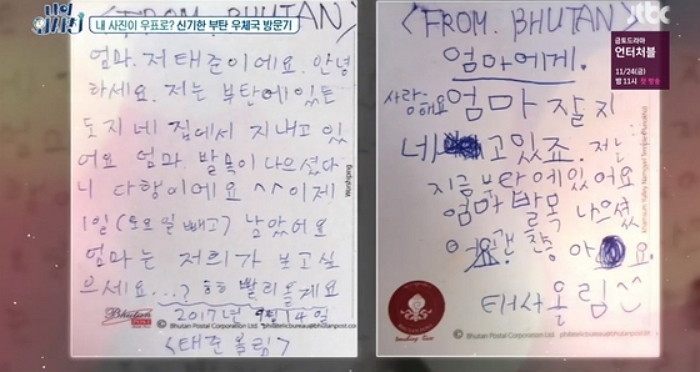 내 사진이 우표로? 신기한 부탄 우체국 방문기
jtbc
금토드라마
언터처블
11/24(금)
밤 11시 첫 방송
<FROM. BHUTAN>
엄마. 저 태준이에요. 안녕
하세요. 저는 부탄에 있는
도지네 집에서 지내고 있
어요 엄마. 발목이 나으셨다
니 다행이에요 ^^ 이제
1일(토요일 빼고) 남았어요
엄마는 저희가 보고싶
으세요...? ㅎㅎ 빨리올게요
2017년 9월 14일
<태준 올림>
Worshiping
Bhutan
© Bhutan Postal Corporation Ltd. philatelicbureau@bhutanpost
<FROM. BHUTAN>
엄마에게.
사랑해요 엄마 잘 지
네 고있죠. 저는
지금 부탄에있어요
엄마 발목 나으셨
어요 괜찮아 요.
태서올림^^
© Bhutan Postal Corporation Ltd. philatelicbureau@bhutanpost